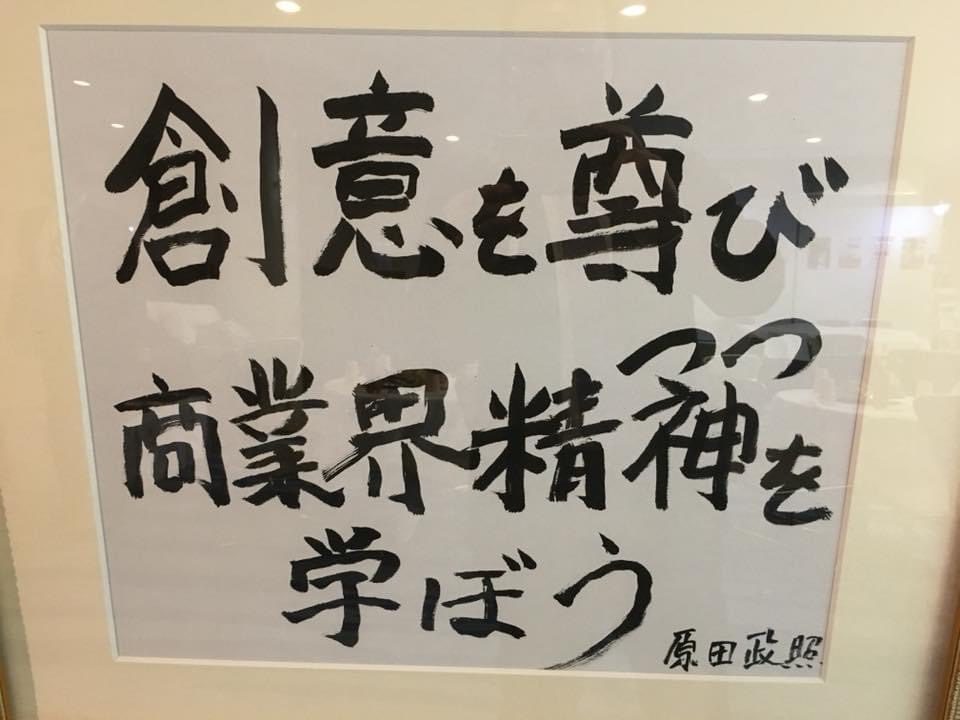 創意を尊び
つつ
商業界精神を
学ぼう
原田政照